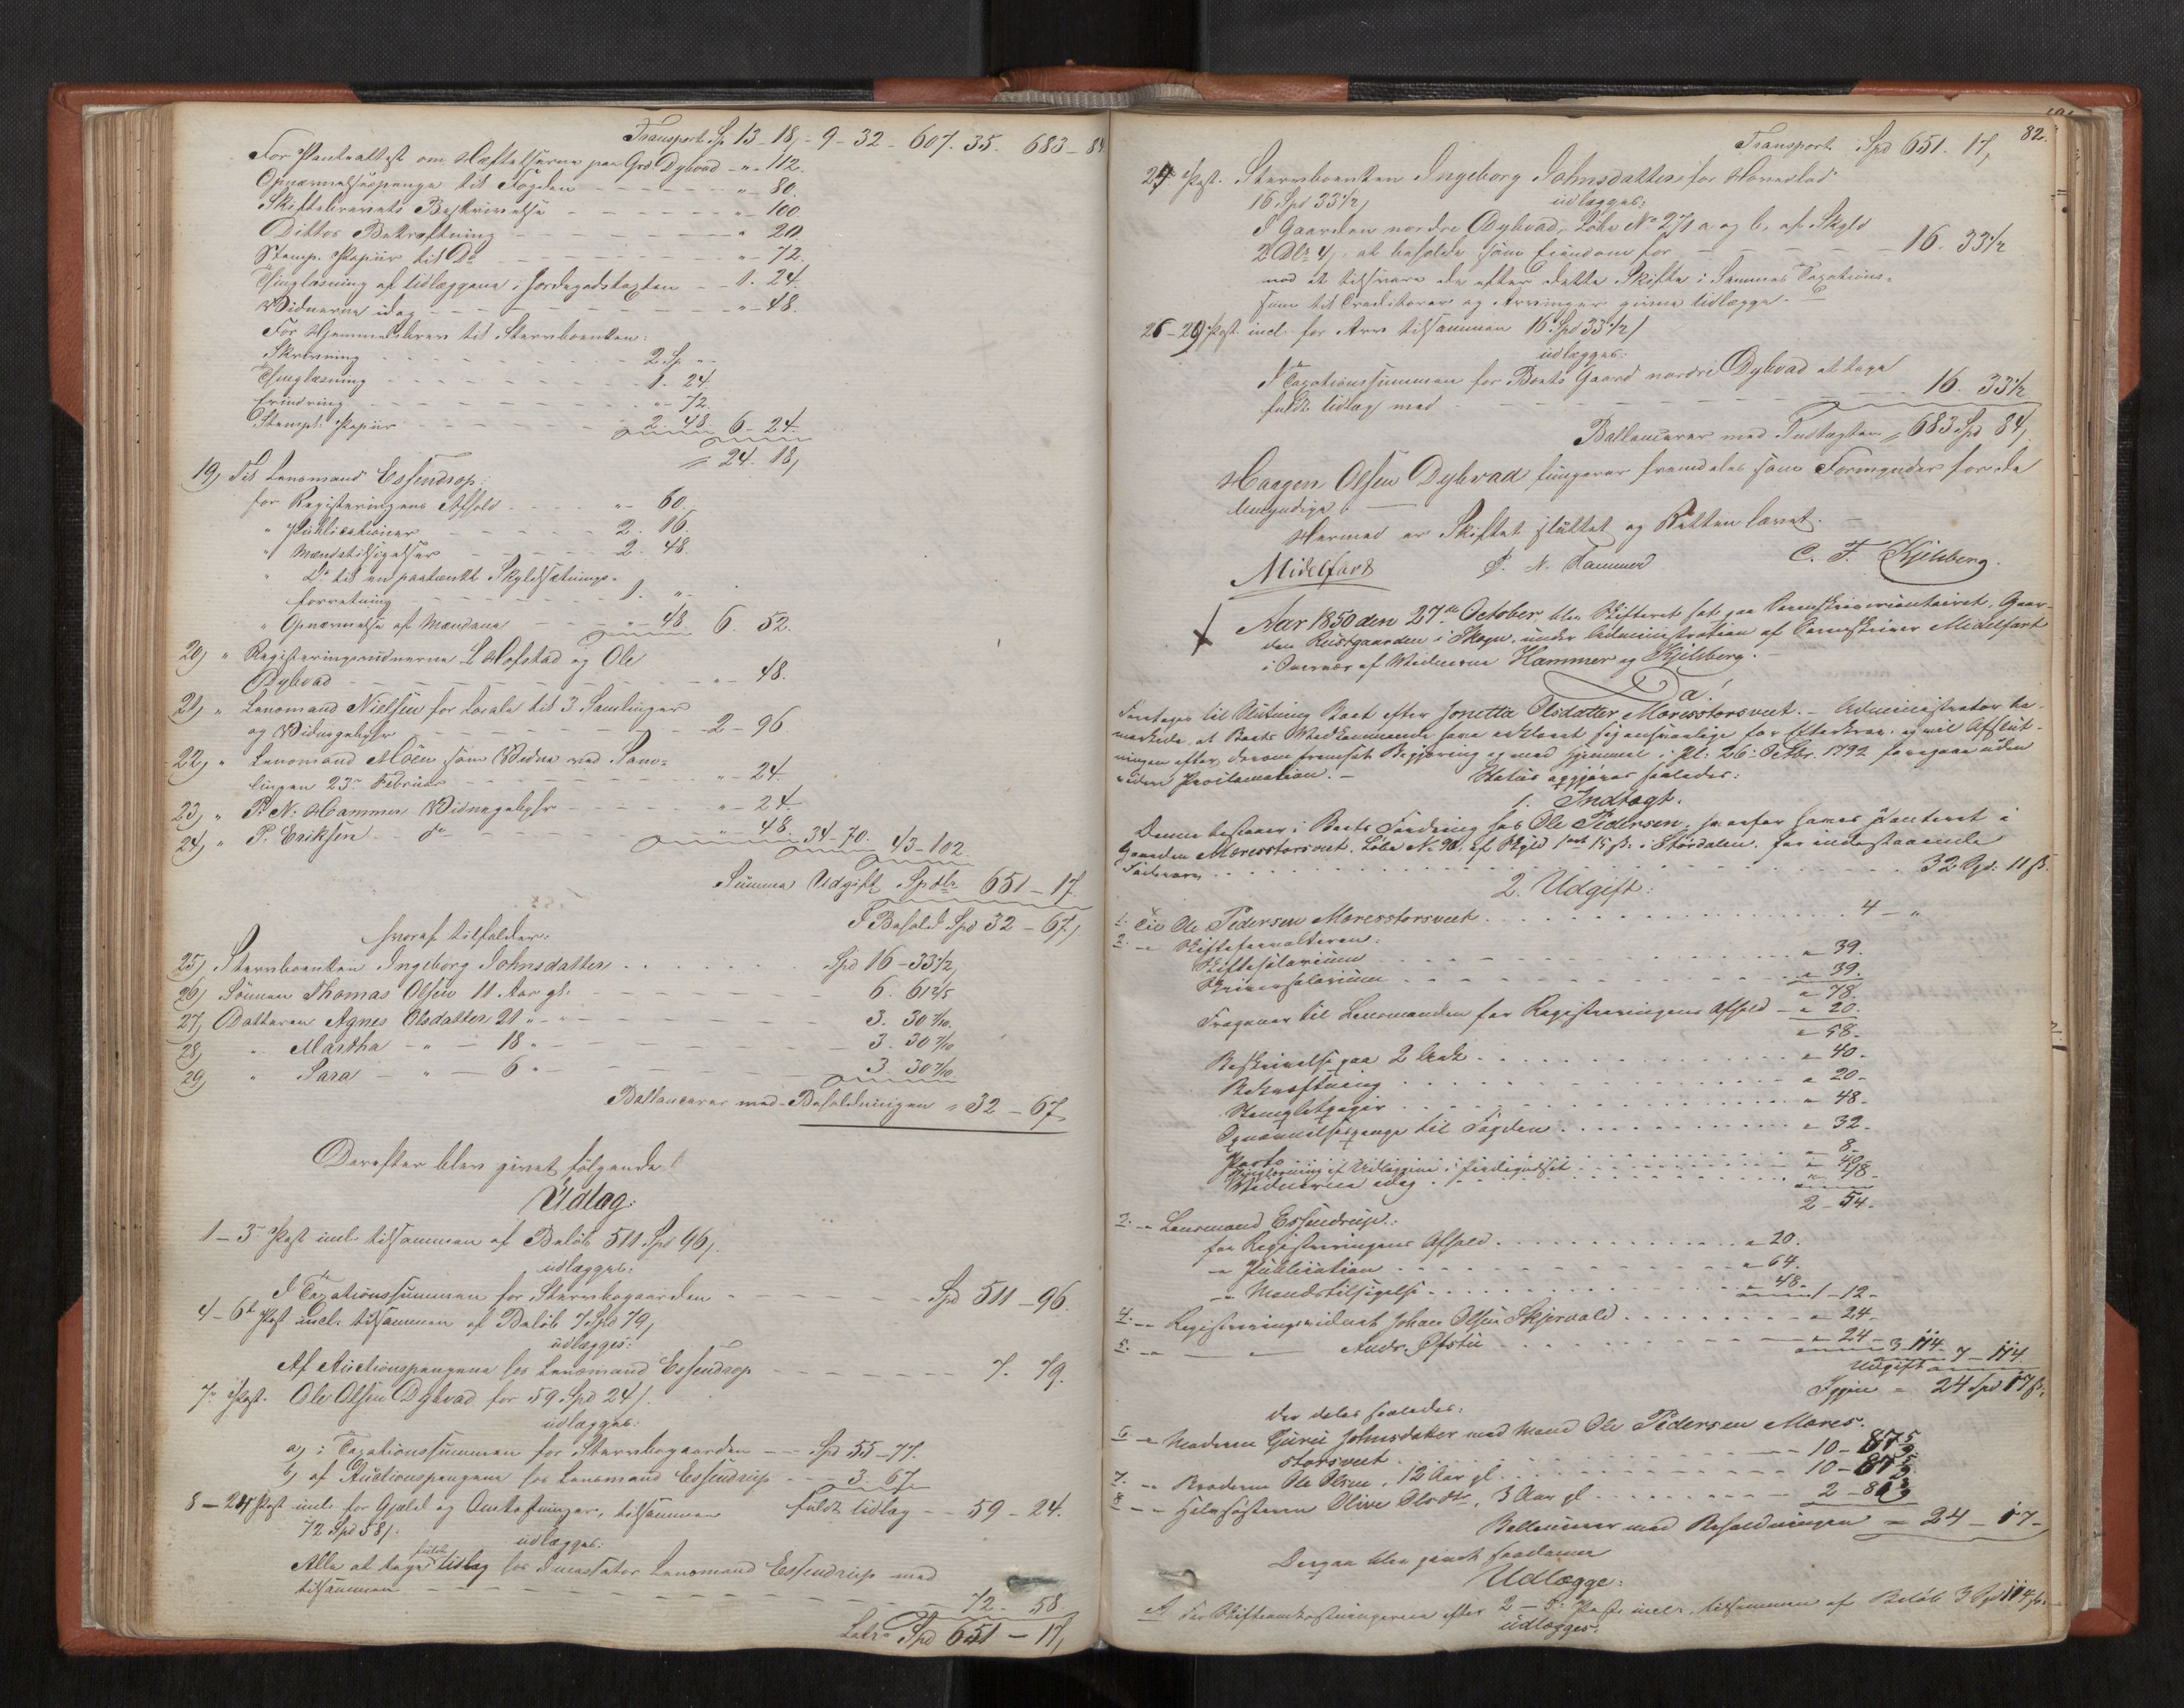 Transport Sp. 13-18, - 9-32 - 607. 35. 683-84
For Panteattest om Hæftelserne paa Grd Dybvad - " - 112.
Opnævnelsespenge til Fogden - " - 80.
Skiftebrevets Beskrivelse - " - 100.
Dittos Bekræftning - " 20
Stemp. Papiir til Do - " - 72.
Thinglæsning af Udlæggene i Jordegodstaxten - 1. 24.
Vidnerne idag - " - 48.
For Hjemmelsbrev til Stervboenken:
Skrivning 2 Sp. " -
Thinglæsning 1. 24.
Erindring " - 72.
Stempl. Papiir 2. 48. 6 - 24.
= 24. 18,
19) Til Lensmand Essendrop:
for Registeringens Afhold " - 60.
" Publicationer 2. 16.
" Mændstilsigelser 2. 48.
" Do til en paatænkt Skyldsætnings-
forretning 1. " -
" Opnævnelse af Mændene " - 48. 6. 52.
20) " Registeringsvidnerne L Hofstad og Ole
Dybvad " - 48.
21) " Lensmand Nielsen for Locale til 3 Samlinger
og Vidnegebyhr 2 - 96
22) " Lensmand Moen som Vidne ved Sam-
lingen 23de Februar " - 24.
23) " P. N. Hammer Vidnegebyhr " - 24.
24) " P. Eriksen do " 48. 34-70. 43-102.
Summa Udgift Spdlr 651-17.
I Behold Spd 32 - 67,
hvoraf tilfalder:
25) Stervboenken Ingeborg Johnsdatter Spd 16 - 33 1/2
26) Sönnen Thomas Olsen 11 Aar gl. 6. 61 2/5
27) Datteren Agnes Olsdatter 21 " - 3. 30 7/10.
28) " Martha - " - 18 " - 3. 30 7/10
29) " Sara - " - 6 " - 3. 30 7/10.
Ballancerer med Beholdningen = 32 - 67,
Derefter blev givet fölgende
Udlæg:
1 - 3de Post incl. tilsammen af Belöb 511 Spd 96,
udlægges:
I Taxationssummen for Stervbogaarden - Spd 511 - 96.
4 - 6te Post incl. tilsammen af Belöb 7 Spd 79,
udlægges:
Af Auctionspengene hos Lensmand Essendrop 7. 79.
7de Post. Ole Olsen Dybvad for 59 Spd 24,
udlægges:
a) i Taxationssummen for Stervbogaarden - Spd 55 - 77.
b) af Auctionspengene hos Lensmand Essendrup - 3. 67
fuldt Udlæg - 59 - 24.
8 - 24 Post incl. for Gjæld og Omkostninger, tilsammen
72 Spd 58,
udlægges:
Alle at tage fuldt Udlæg hos Incassator Lensmand Essendrup med
tilsammen 72. 58.
Latus Spd 651 - 17,
82.
Transport Spd 651. 17,
25 Post. Stervboenken Ingeborg Johnsdatter for Hovedlod
16 Spd 33 1/2,
udlægges:
I Gaarden nordre Dybvad, Löbe No 271 a og b, af Skyld
2 Dlr 4, at beholde som Eiendom for 16. 33 1/2
mod at tilsvare de efter dette Skifte i Sammes Taxations-
sum til Creditorer og Arvinger givne Udlægge.
26 - 29 Post incl. for Arv tilsammen 16 Spd 33 1/2,
udlægges:
I Taxationssummen for Boets Gaard nordre Dybvad at tage
fuldt Udlæg med 16. 33 1/2
Ballancerer med Indtægten = 683 Spd 84,
Haagen Olsen Dybvad fungerer fremdeles som Formynder for de
Umyndige. -
Hermed er Skiftet sluttet og Retten hævet. -
Midelfart P. N. Hammer C. F. Kjelsberg.
Aar 1850 den 27de October blev Skifteret sat paa Sorenskrivercontoiret, Gaar-
den Rustgaarden i Skogn, under Administration af Sorenskriver Midelfart
i Overvær af Vidnerne Hammer og Kjelsberg. -
Da!
Foretoges til Slutning Boet efter Jonetta Olsdatter Moresstorsveet. - Administrator be-
mærkede, at Boets Vedkommende have erklæret sig ansvarlige for Efterkrav, og vil Afslut-
ningen efter derom fremsat Begjæring og med Hjemmel i Pl: 26. Octbr. 1792 foregaae uden
videre Proclamation. -
Status opgjöres saaledes:
1. Indtægt.
Denne bestaaer i Boets Fordring hos Ole Pedersen, hvorfor haves Panteret i
Gaarden Moresstorsveet, Löbe No 90, af Skyld 1 ort 15 ß. i Stördalen, for indestaaende
32 Spd: 11 ß.
2. Udgift:
1. Til Ole Pedersen Moresstorsveet 4 - "
2. - " Skifteforvalteren:
Skiftesalarium " 39.
Skriversalarium " 39.
" 78.
Fragaaer til Lensmanden for Registreringens Afhold - " 20.
" 58.
Beskrivelse paa 2 Ark " 40.
Bekræftning " 20 -
Stempletpapir " 48 -
Opnævnelsespenge til Fogden " 32 -
Porto " 8 -
Thinglæsning af Udlæggene i Jordegodset " 40 -
Vidnerne idag " 48 -
2 - 54 -
3. - " Lensmand Essendrup:
for Registreringens Afhold " 20.
- " Publication " 64.
- " Mændstilsigelse " 48 - 1 - 12 -
4. - " Registreringsvidnet Johan Olsen Skjervald " 24 -
5. - " - Andr. Ofsti " 24 - 3-114.
Udgift 7 - 114.
Igjen = 24 Spd 17 ß.
der deles saaledes:
6 - " Moderen Guru Johnsdatter med Mand Ole Pedersen Mores-
storsveet 10 - 87 5/9.
7. - " Broderen Ole Olsen, 12 Aar gl. 10 - 87 5/9.
8 - " Halvsösteren Olive Olsdtr, 3 Aar gl 2 - 81
Ballancerer med Beholdningen = 24 - 17 -
Derpaa blev givet saadanne
Udlægge:
A For Skifteomkostningerne efter 2 - 5te Post incl. tilsammen af Belöb 3 Spd 114 ß.
udlægges: